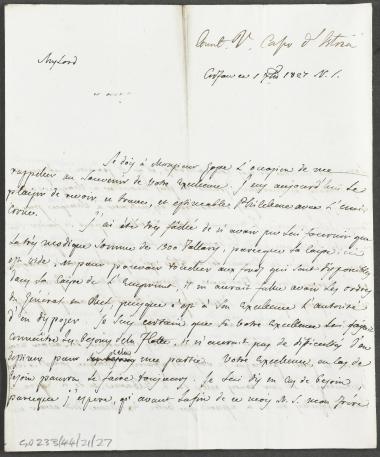 Count V. Capo d'Istria
Mylord
Corfou ce 1 1827 N. S.
Je dois à Monsieur l'occasion de me
rappeller au souvenir de Votre Excellence. J'eus aujourd'hui le
plaisir de revoir ce brave, et estimable Philellene avec l'
J'ai été très fachée de n'avoir pu lui fournir que
la très modique somme de 1300 Tallaris, parceque la Caisse en
est vide, et pour pouvoir toucher aux fonds qui sont disponibles
dans la Caisse de l'Emprunt, il m'aurait fallu avoir les ordres
du Général en Chef, puisque c'est à Son Excellence l'autorité
d'en disposer. Je suis certain que si Votre Excellence lui faisait
connaitre les besoins de la Flotte, il n'aurait pas de difficultés d'en
pour cela une partie. Votre Excellence, en cas de
besoin pourra le faire toujours. Je lui dis en cas de besoin,
parceque j'espère, qu'avant la fin de ce mois N. S. mon frère
CA233/44/21/27